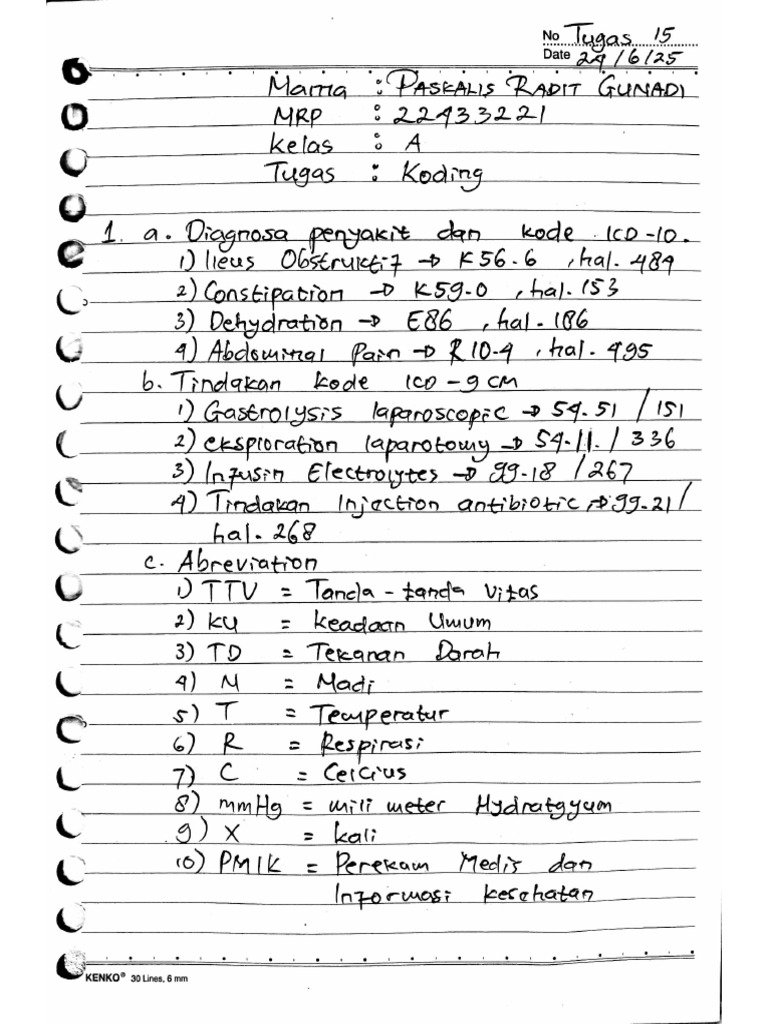 No Tugas 15
Date 24/6/25
Nama : PASKALIS RADIT GUNADI
NRP : 22433221
Kelas : A
Tugas : Koding
1. a. Diagnosa penyakit dan kode ICD-10.
1) Ileus Obstruktif → K56.6 , hal. 484
2) Constipation → K59.0 , hal. 153
3) Dehydration → E86 , hal. 186
4) Abdominal Pain → R10.4 , hal. 495
b. Tindakan kode ICD-9CM
1) Gastrolysis laparoscopic → 54.51 / 151
2) eksploration laparotomy → 54.11. / 336
3) Infusin Electrolytes → 99.18 / 267
4) Tindakan Injection antibiotic, → 99.21 /
hal. 268
c. Abreviation
1) TTV = Tanda-tanda Vitas
2) KU = Keadaan Umum
3) TD = Tekanan Darah
4) N = Nadi
5) T = Temperatur
6) R = Respirasi
7) C = Celcius
8) mmHg = mili meter Hydratgyum
9) X = kali
10) PMIK = Perekam Medis dan
Informasi kesehatan
KENKO® 30 Lines, 6 mm